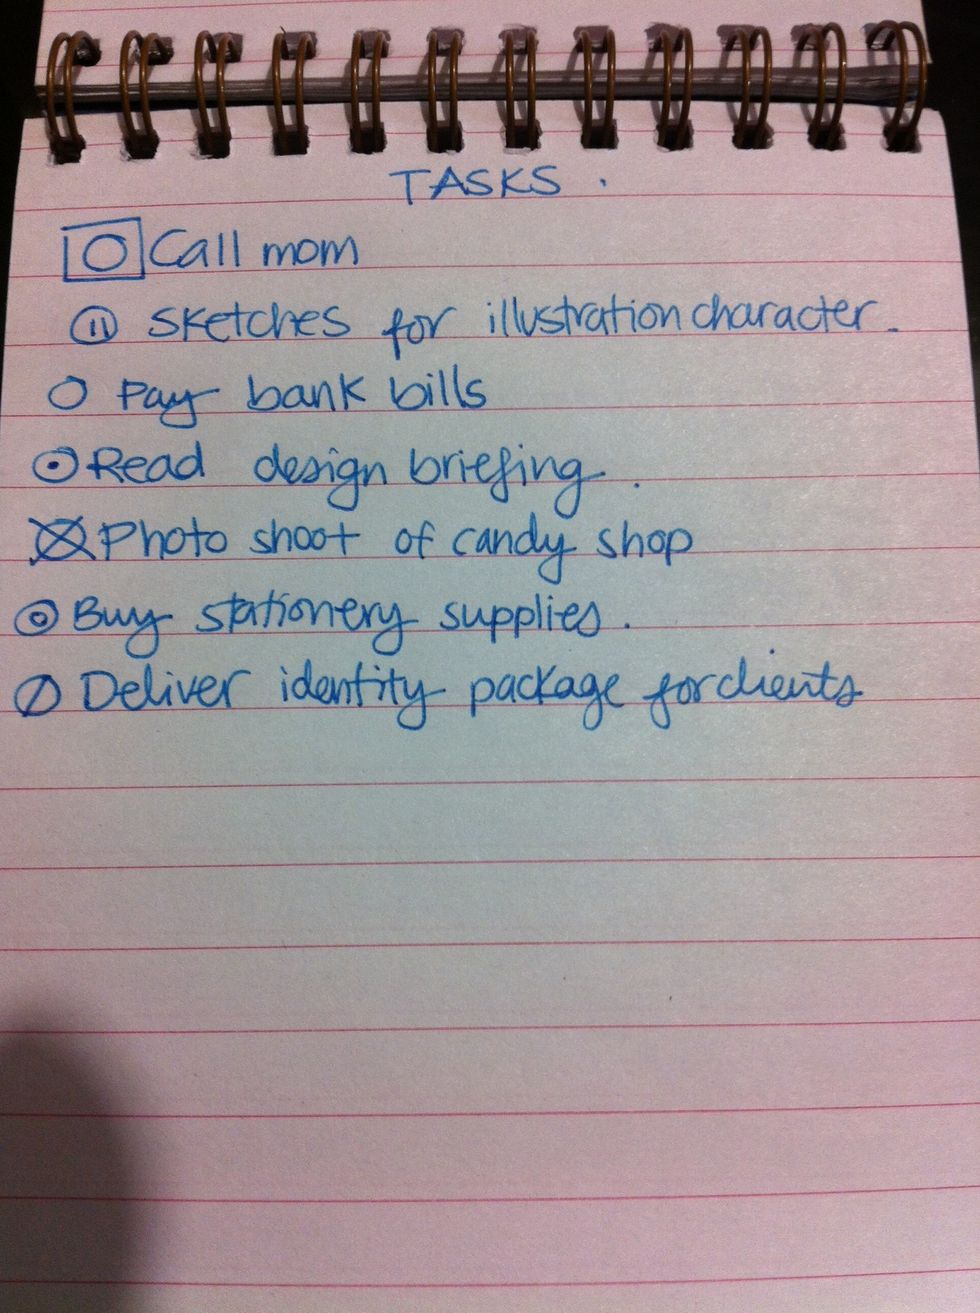 TASKS .
Call mom
Sketches for illustration character.
Pay bank bills
Read design briefing.
Photo shoot of candy shop
Buy stationery supplies.
Deliver identity package for clients